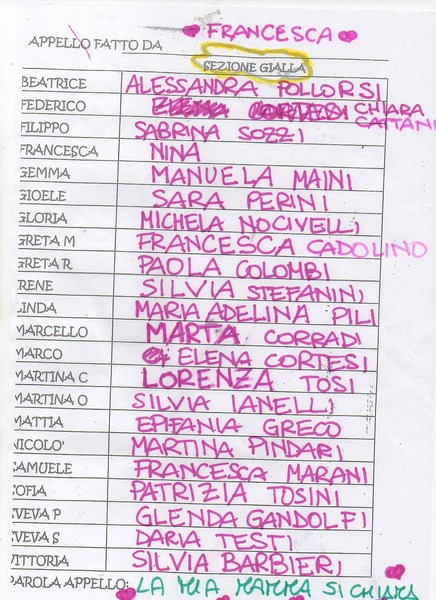 APPELLO FATTO DA FRANCESCA
SEZIONE GIALLA
BEATRICE ALESSANDRA POLLORSI
FEDERICO CHIARA CATTANI
FILIPPO SABRINA SOZZI
FRANCESCA NINA
GEMMA MANUELA MAINI
GIOELE SARA PERINI
GLORIA MICHELA NOCIVELLI
GRETA M FRANCESCA CADOLINO
GRETA R PAOLA COLOMBI
IRENE SILVIA STEFANINI
LINDA MARIA ADELINA PILI
MARCELLO MARTA CORRADI
MARCO ELENA CORTESI
MARTINA C LORENZA TOSI
MARTINA O SILVIA IANELLI
MATTIA EPIFANIA GRECO
NICOLO' MARTINA PINDARI
SAMUELE FRANCESCA MARANI
SOFIA PATRIZIA TOSINI
SVEVA P GLENDA GANDOLFI
SVEVA S DARIA TESTI
VITTORIA SILVIA BARBIERI
PAROLA APPELLO: LA MIA MAMMA SI CHIAMA